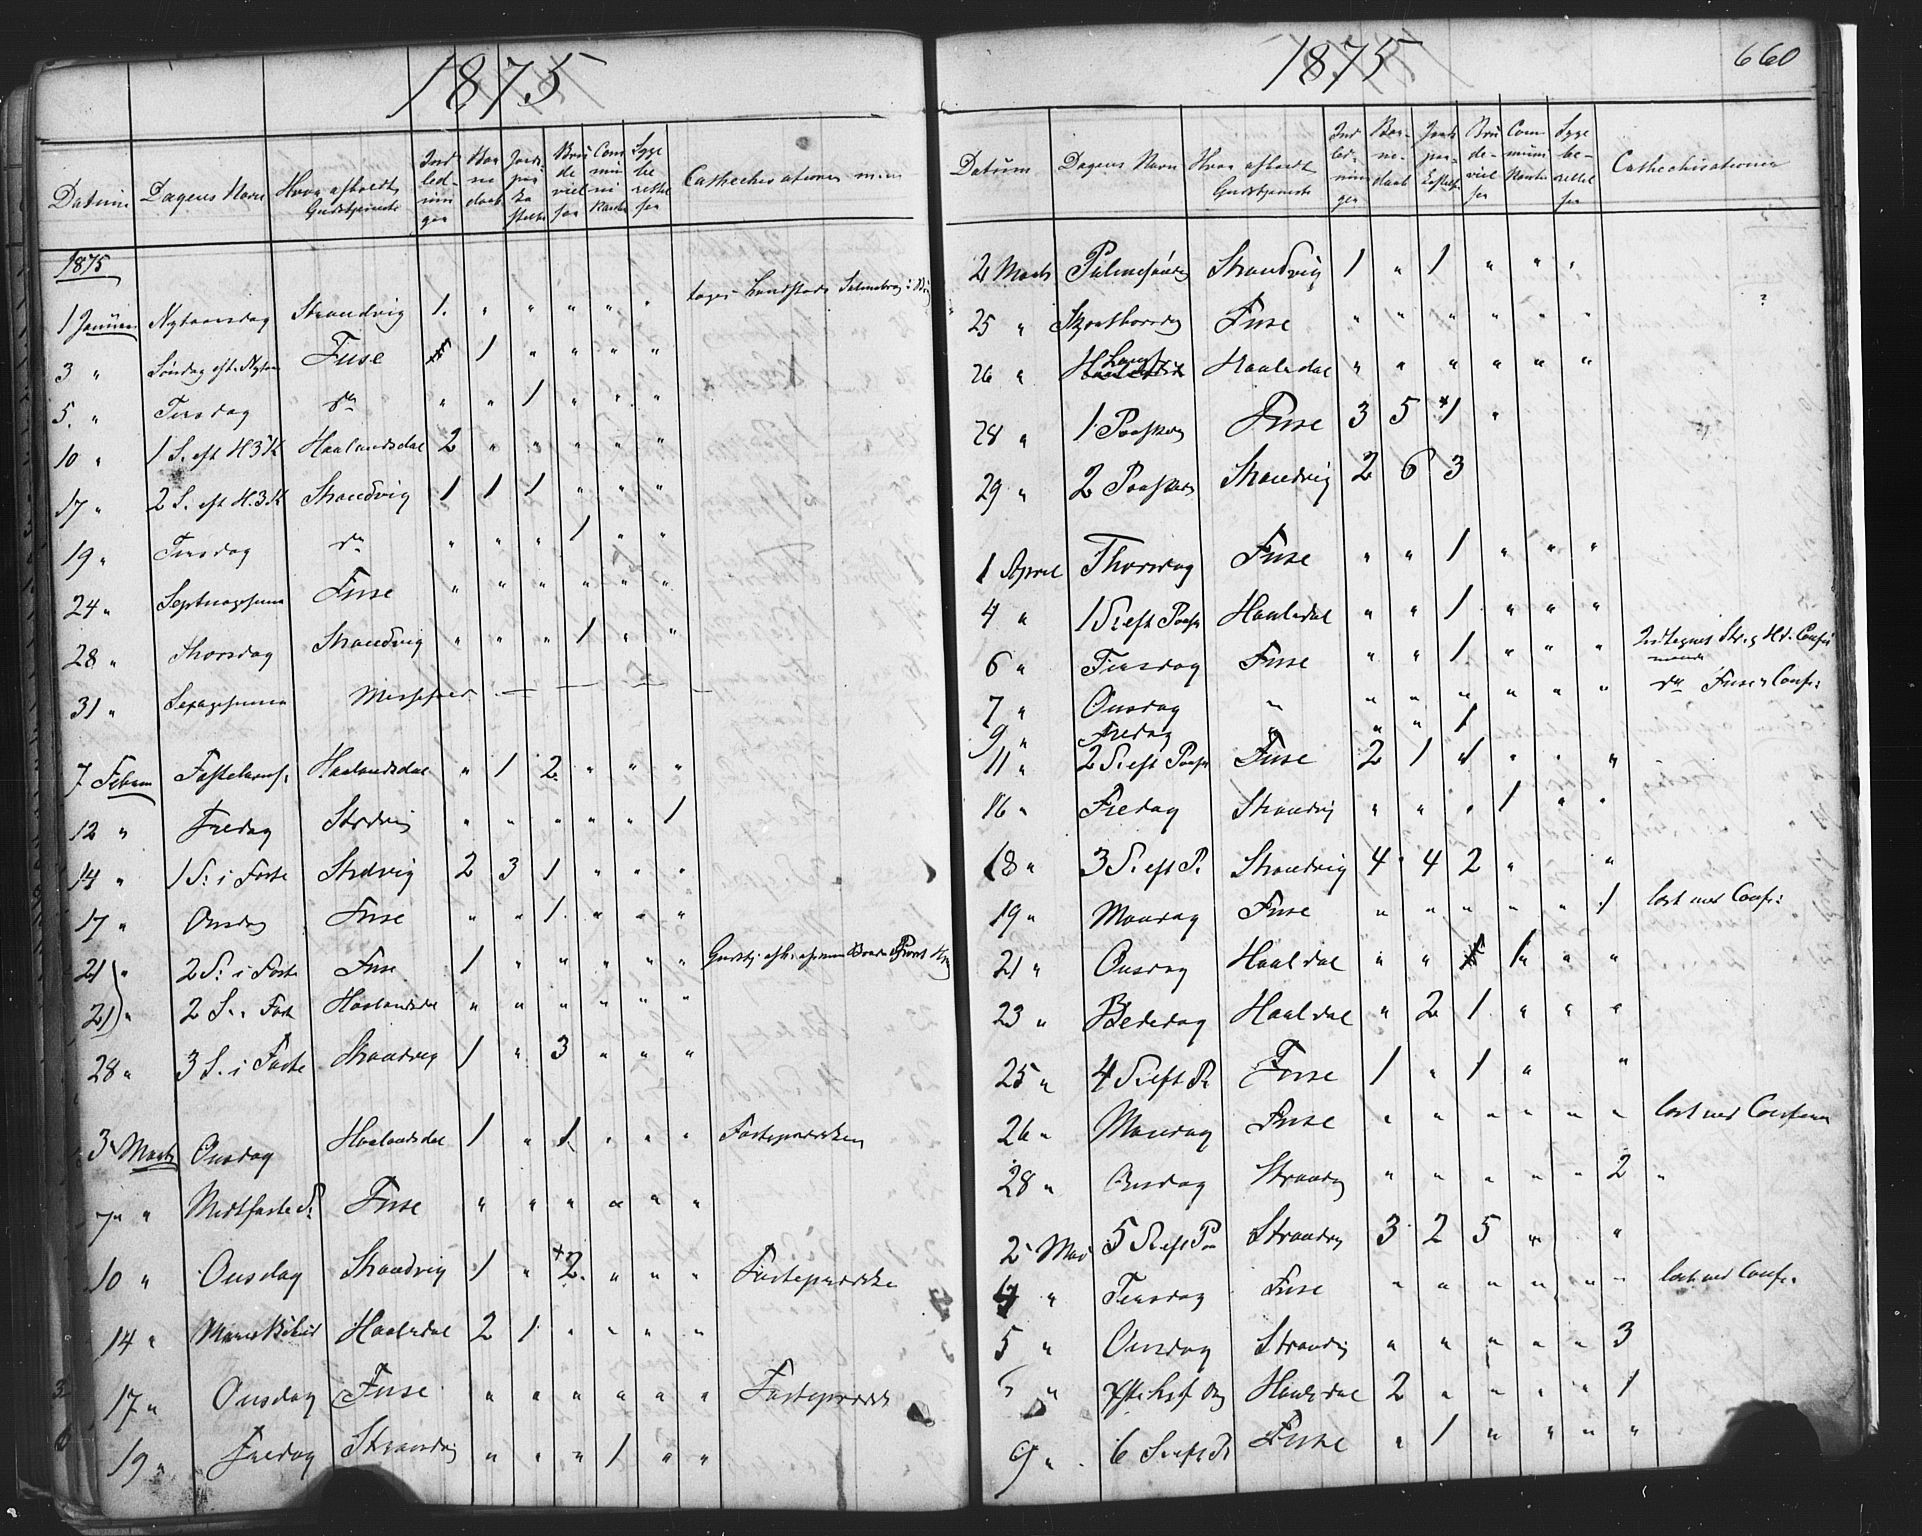 1875
Datum Dagens Navn Hvor afholdt Gudstjeneste Indledninger Barnedaab Jordspaakastelse Brudevielser Communikanter Sygeberettelser Cathechisationer
1875
1 Januar Nytaarsdag Strandvig 1. " " " " "
3 " Søndag eft. Nytaar Fuse 1 " " " "
5. " Tirsdag do " " 1 " " "
10 " 1 S. eft H3K Haalandsdal 2 " " " " "
17 " 2 S. eft H.3.K Strandvig 1 1 1 " " "
19 " Tirsdag do " " " 1 " "
24 " Septuagesima Fuse " " " " " "
28 " Thorsdag Strandvig " " " 1 " "
31 " Sexagesima Messefald — — — —
7 Februar Fastelavns. Haalandsdal " 1 2 " " "
12 " Fredag Strdvig " " " " " 1
14 " 1 S. i Faste Strdvig 2 3 1 " " "
17 " Onsdag Fuse " " 1 " " "
21 " 2 S. i Faste Fuse 1 " " " " " Gudstj. afh. af
21 " 2 S. i Fast Haalandsdal " " " " " "
28 " 3 S. i Faste Strandvig 1 " 3 " " "
3 Marts Onsdag Haalandsdal 1 " 1 " " " Fasteprædiken
7 " Midtfaste S. Fuse " " " " " "
10 " Onsdag Strandvig 1 " +2. " " " Fasteprædike
14 " Mariæ Bebud Haalsdal 2 1 " " " "
17 " Onsdag Fuse " " " " " " Fasteprædik
19 " Fredag Strandvig " " " 1 " "
1875
660
Datum Dagens Navn Hvor afholdt Gudstjeneste Indledninger Barnedaab Jordspaakastelse Brudevielser Communikanter Sygeberettelser Cathechisationer
2 Marts Palmesøndag Strandvig 1 " 1 " " "
25 " Skjærthorsdag Fuse " " " " " "
26 " Langfr Haalsdal " " " " " "
28 " 1 Paaskedag Fuse 3 5 +1 "
29 " 2 Paaskedag Strandvig 2 6 3
1 April Thorsdag Fuse " " 1 " " "
4 " 1 S. eft Paask Haalsdal " " 1 " " "
6 " Tirsdag Fuse " " 1 " " " Indtegnes Str. og Hd. Confirmander
7 " Onsdag " " " " " " " do Fuse Confr:
9 " Fredag " " " 1
11 " 2 S. eft Paask Fuse 2 1 1 " " "
16 " Fredag Strandvig " " " 1 " "
18 " 3 S. eft P. Strandvig 4 4 2 " "
19 " Mandag Fuse " " " " " 1 læst med Confr:
21 " Onsdag Haalsdal " " 1 " "
23 " Bededag Haalsdal " 2 1 " " "
25 " 4 S. eft P. Fuse 1 " 1 " "
26 " Mandag Fuse " " " " " " læst med Confirm
28 " Onsdag Strandvig " " " " " 2 "
2 Mai 5 S. eft P. Strandvig 3 2 5 " "
4 " Tirsdag Fuse " " " " " " læst med Confr:
5 " Onsdag Strandvig " " " " " 3
" Christi hf. Dag Haalsdal 2 " " " " 1
9 " 6 S. eft P. Fuse " 1 " " " "